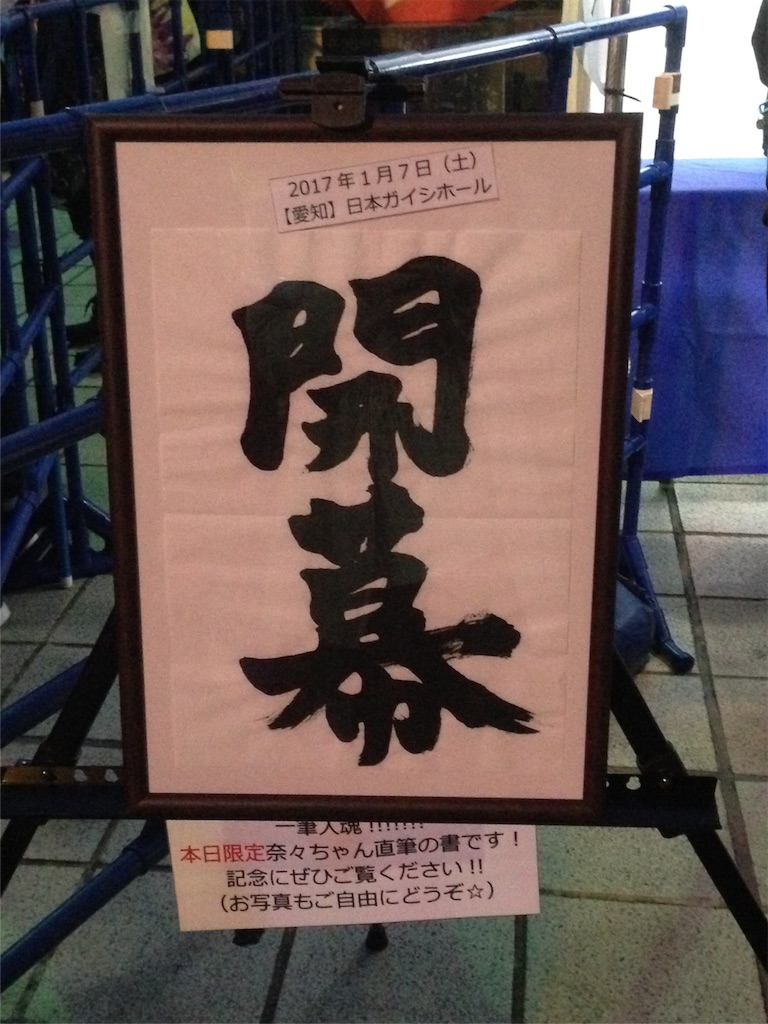 2017年1月7日（土）
【愛知】日本ガイシホール
開幕
一筆入魂!!!!!!!
本日限定奈々ちゃん直筆の書です！
記念にぜひご覧ください!!
（お写真もご自由にどうぞ☆）